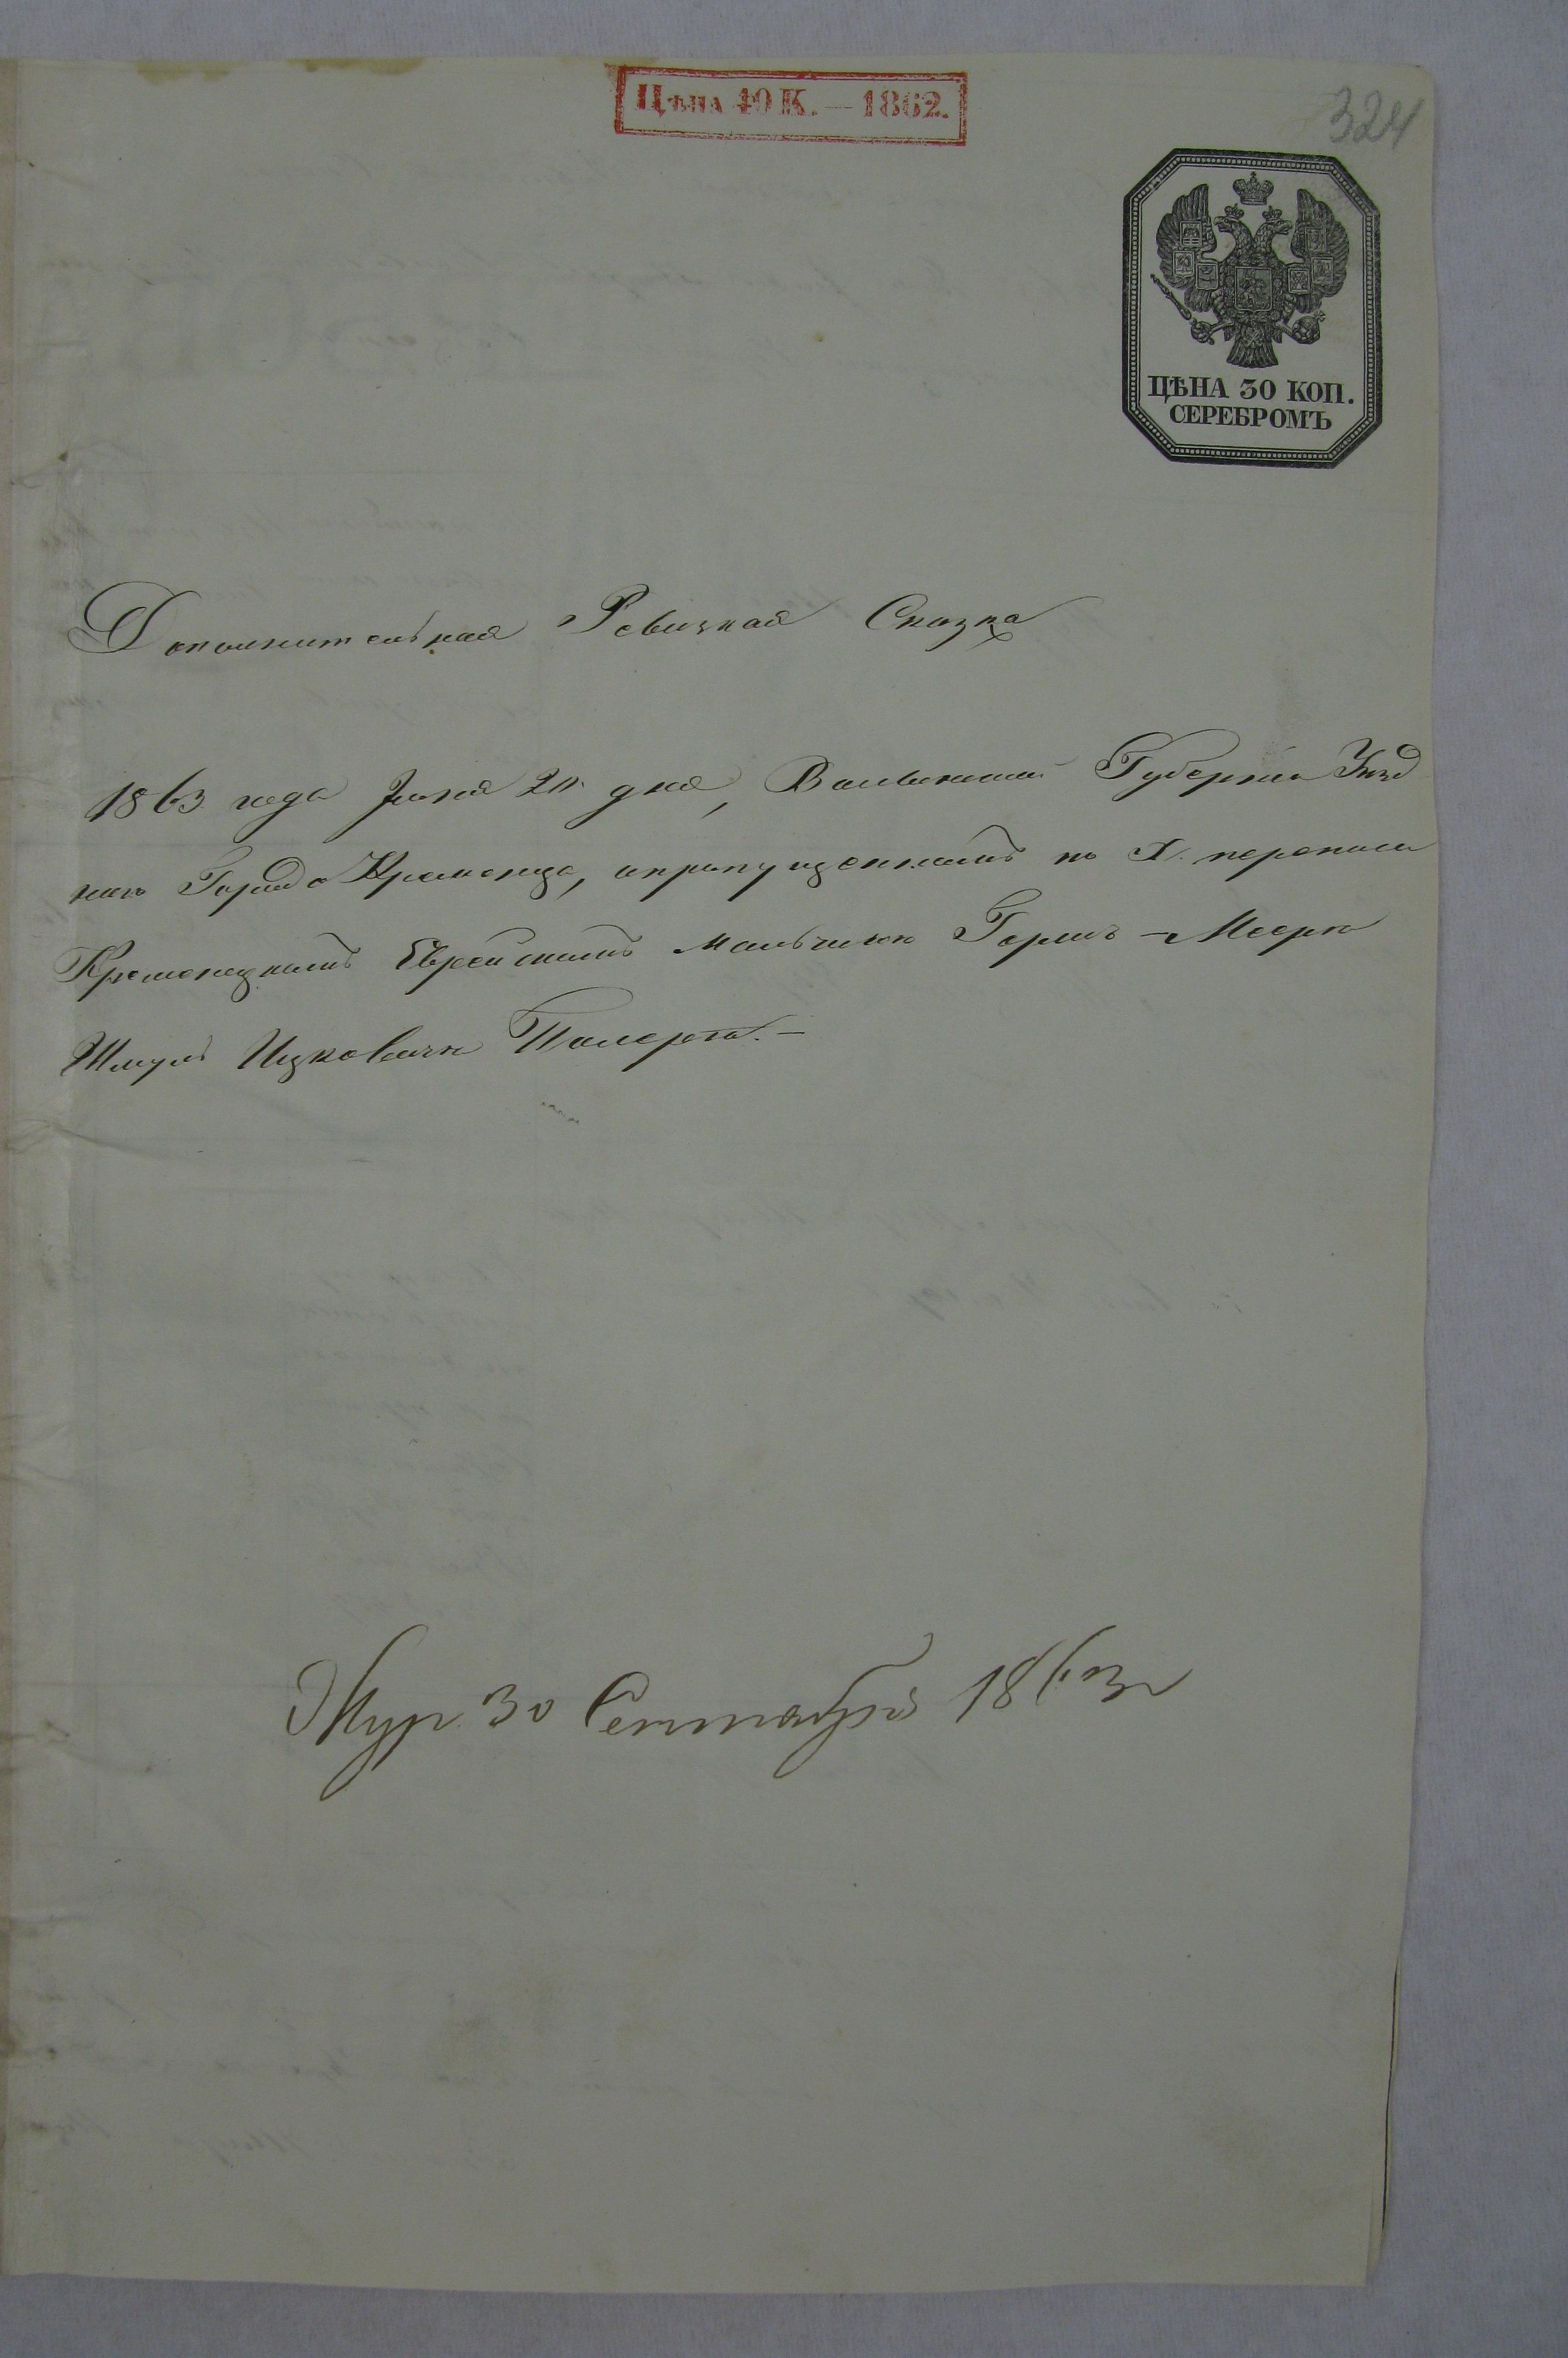 Цѣна 40 К. — 1862.
324
ЦѢНА 30 КОП.
СЕРЕБРОМЪ
Дополнительная Ревизская Сказка
1863 года Іюня 20 дня, Волынской Губерніи Уѣзд
наго Города Кременца, о пропущенномъ по X. переписи
Кременецкомъ Еврейскомъ мальчикѣ Мееръ
Шмулѣ Ицковичѣ
Жур. 30 Сентября 1863 г